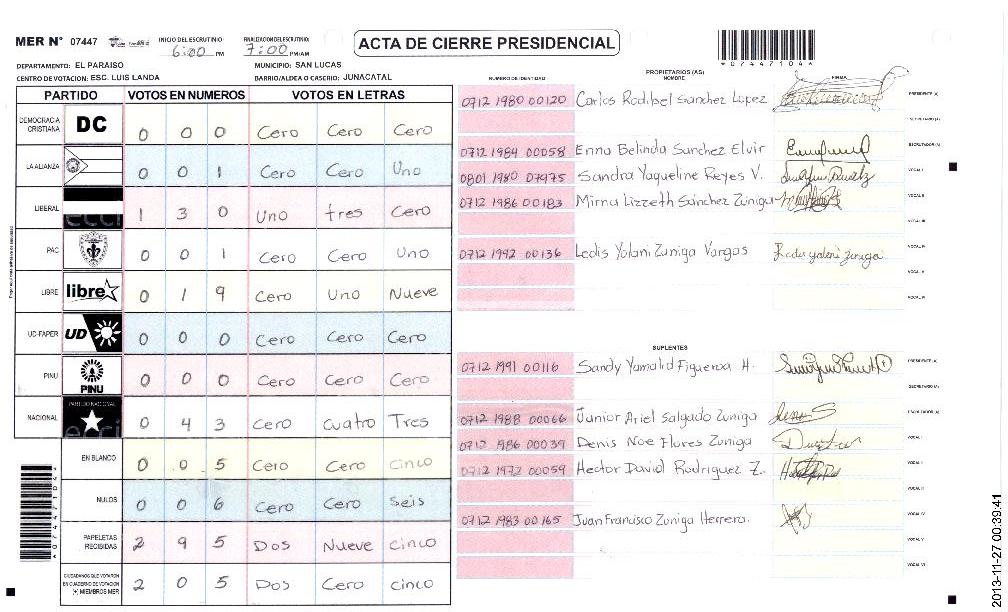 MER N° 07447
INICIO DEL ESCRUTINIO: 6:00 PM
FINALIZACION DEL ESCRUTINIO: 7:00 PM/AM
ACTA DE CIERRE PRESIDENCIAL
*07447104*
DEPARTAMENTO: EL PARAISO
MUNICIPIO: SAN LUCAS
CENTRO DE VOTACION: ESC. LUIS LANDA
BARRIO/ALDEA O CASERIO: JUNACATAL
PARTIDO VOTOS EN NUMEROS VOTOS EN LETRAS
DEMOCRACIA CRISTIANA DC 0 0 0 Cero Cero Cero
LA ALIANZA 0 0 1 Cero Cero Uno
LIBERAL 1 3 0 Uno tres Cero
PAC 0 0 1 Cero Cero Uno
LIBRE libre 0 1 9 Cero Uno Nueve
UD-FAPER UD 0 0 0 Cero Cero Cero
PINU PINU 0 0 0 Cero Cero Cero
NACIONAL PARTIDO NACIONAL 0 4 3 Cero Cuatro Tres
EN BLANCO 0 0 5 Cero Cero Cinco
NULOS 0 0 6 Cero Cero Seis
PAPELETAS RECIBIDAS 2 9 5 Dos Nueve Cinco
CIUDADANOS QUE VOTARON EN CUADERNO DE VOTACION (+) MIEMBROS MER 2 0 5 Dos Cero Cinco
*07447104*
NUMERO DE IDENTIDAD
PROPIETARIOS (AS)
NOMBRE
FIRMA
0712 1980 00120 Carlos Rodibel Sanchez Lopez PRESIDENTE (A)
SECRETARIO (A)
0712 1984 00058 Enna Belinda Sanchez Elvir ESCRUTADOR (A)
0801 1980 07975 Sandra Yaqueline Reyes V. VOCAL I
0712 1986 00183 Mirna Lizzeth Sanchez Zuniga VOCAL II
VOCAL III
0712 1992 00136 Ledis Yolani Zuniga Vargas VOCAL IV
VOCAL V
VOCAL VI
SUPLENTES
0712 1991 00116 Sandy Yamalid Figueroa H. PRESIDENTE (A)
SECRETARIO (A)
0712 1988 00066 Junior Ariel Salgado Zuniga ESCRUTADOR (A)
0712 1986 00039 Denis Noe Flores Zuniga VOCAL I
0712 1972 00059 Hector David Rodriguez Z. VOCAL II
VOCAL III
0712 1983 00165 Juan Francisco Zuniga Herrera. VOCAL IV
VOCAL V
VOCAL VI
2013-11-27 00:39:41